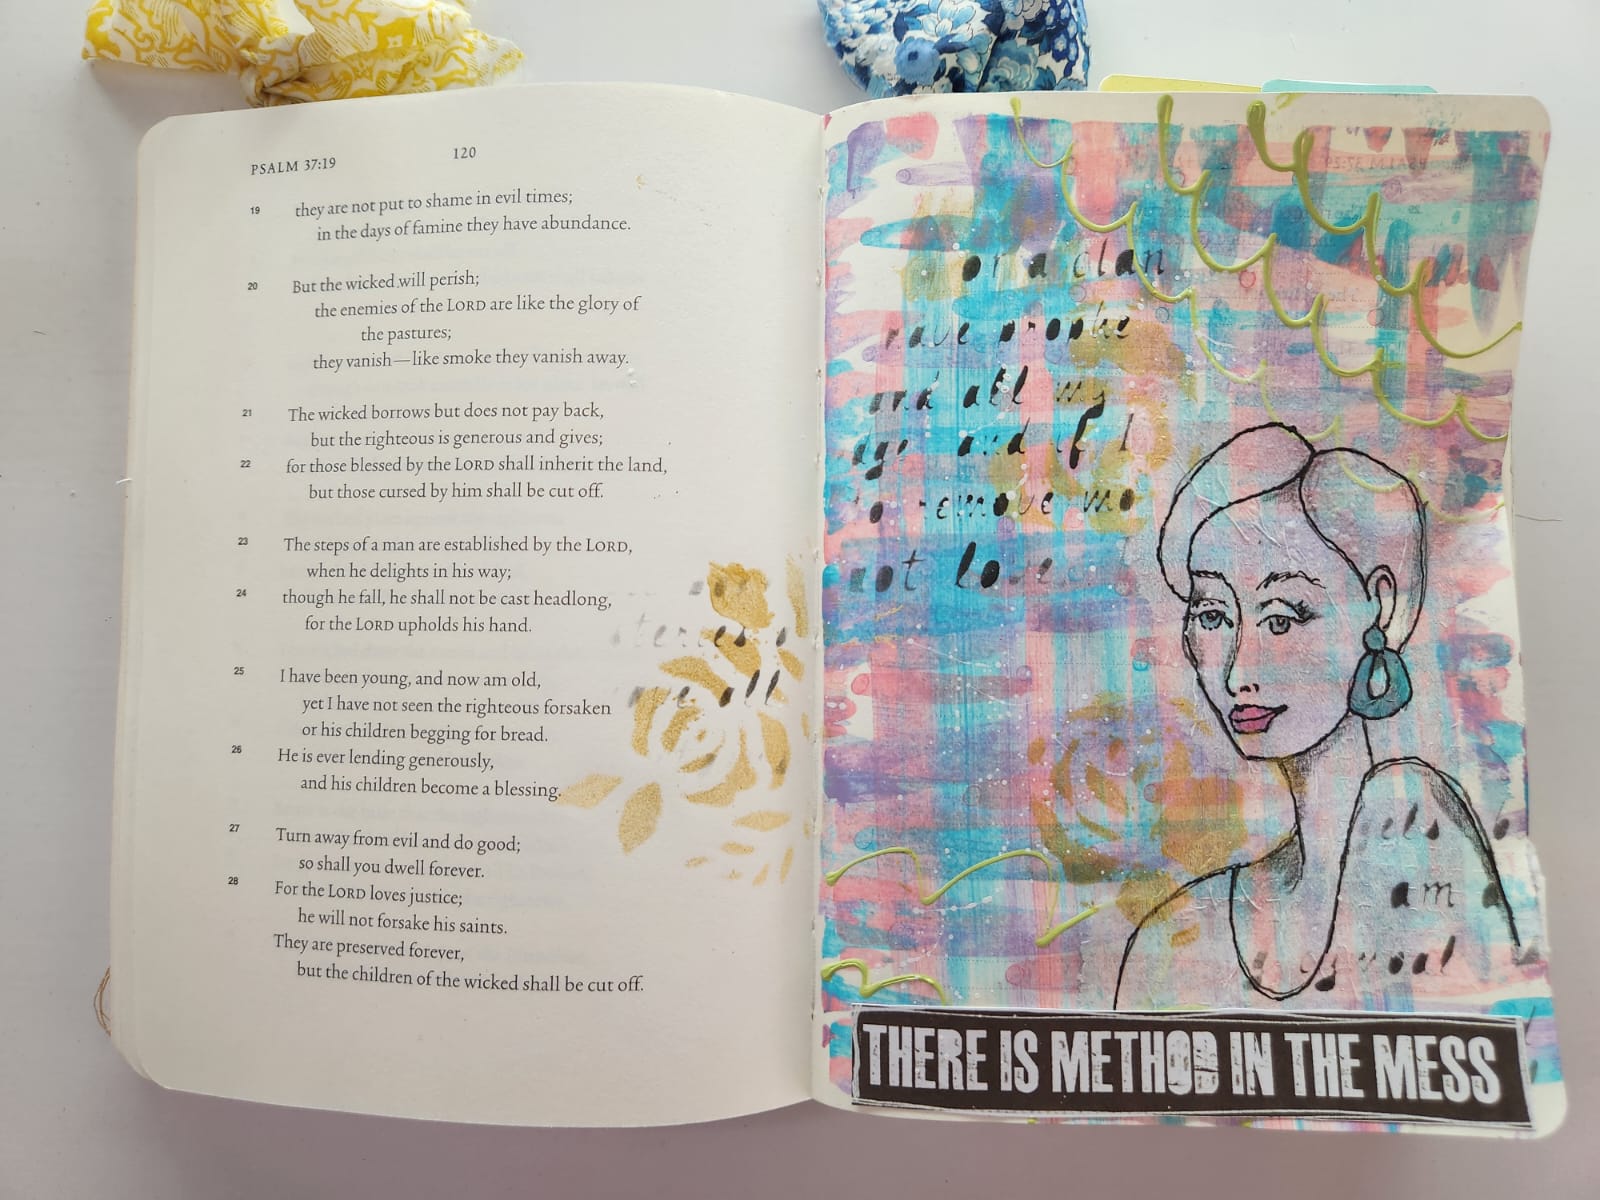 PSALM 37:19
120
19 they are not put to shame in evil times;
in the days of famine they have abundance.
20 But the wicked will perish;
the enemies of the LORD are like the glory of
the pastures;
they vanish—like smoke they vanish away.
21 The wicked borrows but does not pay back,
but the righteous is generous and gives;
22 for those blessed by the LORD shall inherit the land,
but those cursed by him shall be cut off.
23 The steps of a man are established by the LORD,
when he delights in his way;
24 though he fall, he shall not be cast headlong,
for the LORD upholds his hand.
25 I have been young, and now am old,
yet I have not seen the righteous forsaken
or his children begging for bread.
26 He is ever lending generously,
and his children become a blessing.
27 Turn away from evil and do good;
so shall you dwell forever.
28 For the LORD loves justice;
he will not forsake his saints.
They are preserved forever,
but the children of the wicked shall be cut off.
or a clan
and all my
and if I
not love
am a
THERE IS METHOD IN THE MESS